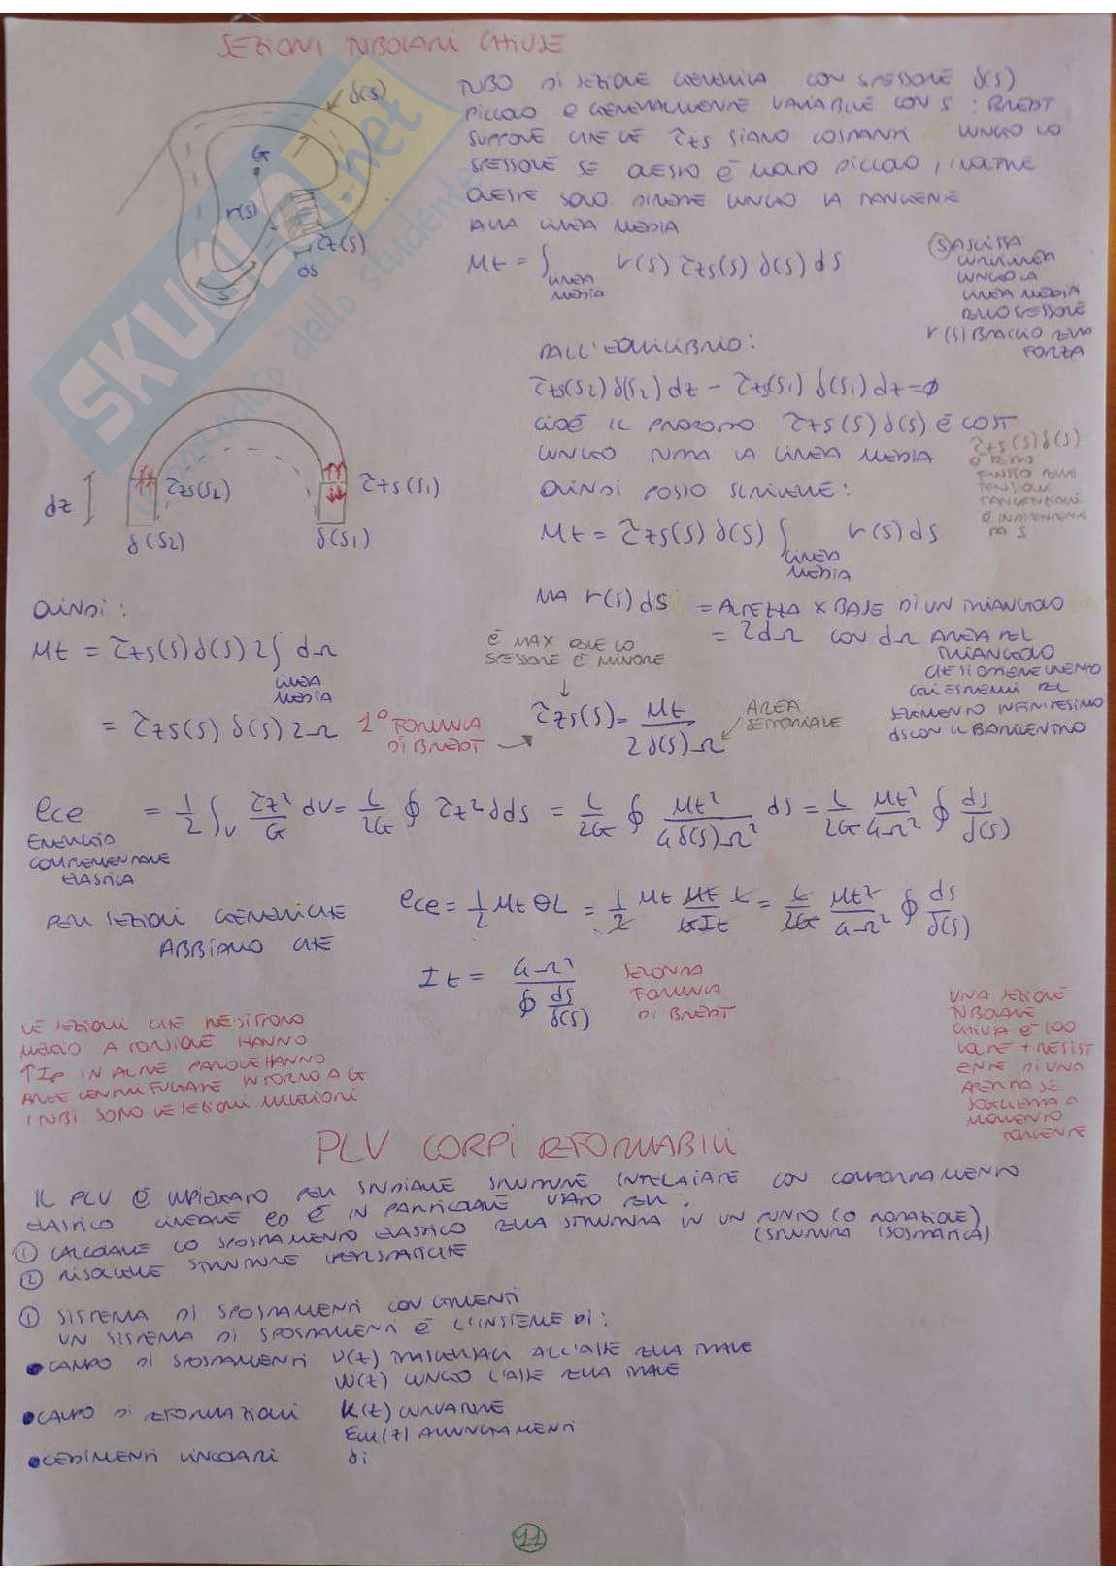 SEZIONI TUBOLARI CHIUSE
TUBO DI SEZIONE GENERICA CON SPESSORE δ(S)
PICCOLO E GENERALMENTE VARIABILE CON S : BREDT
SUPPONE CHE LE τzs SIANO COSTANTI LUNGO LO
SPESSORE SE QUESTO È MOLTO PICCOLO, INOLTRE
QUESTE SONO DIRETTE LUNGO LA TANGENTE
ALLA LINEA MEDIA
δ(S)
G
r(s)
τz(s)
ds
S
Mt = ∫ LINEA MEDIA r(s) τzs(s) δ(s) ds
(S) ASCISSA
CURVILINEA
LUNGO LA
LINEA MEDIA
DELLO SPESSORE
r(s) BRACCIO DELLA
FORZA
DALL'EQUILIBRIO:
τzs(s2) δ(s2) dz - τzs(s1) δ(s1) dz = 0
CIOÈ IL PRODOTTO τzs(s) δ(s) È COST
LUNGO TUTTA LA LINEA MEDIA
τzs(s) δ(s)
È DETTO
FLUSSO DELLE
TENSIONI
TANGENZIALI
È INDIPENDENTE
DA S
dz
τzs(s2)
τzs(s1)
δ(s2)
δ(s1)
QUINDI POSSO SCRIVERE:
Mt = τzs(s) δ(s) ∫ LINEA MEDIA r(s) ds
MA r(s) ds = ALTEZZA X BASE DI UN TRIANGOLO
= 2dΩ CON dΩ AREA DEL
TRIANGOLO
CHE SI OTTIENE UNENDO
GLI ESTREMI DEL
SEGMENTO INFINITESIMO
ds CON IL BARICENTRO
QUINDI:
Mt = τzs(s) δ(s) 2 ∫ LINEA MEDIA dΩ
= τzs(s) δ(s) 2Ω
1° FORMULA
DI BREDT
È MAX DOVE LO
SPESSORE È MINORE
τzs(s) = Mt / 2δ(s)Ω
AREA
SETTORIALE
ece = 1/2 ∫V τz²/G dV = L/2G ∮ τz² δ ds = L/2G ∮ Mt²/4δ(s)Ω² ds = L/2G Mt²/4Ω² ∮ ds/δ(s)
ENERGIA
COMPLEMENTARE
ELASTICA
PER SEZIONI GENERICHE
ABBIAMO CHE
ece = 1/2 Mt θL = 1/2 Mt Mt/GIt L = L/2G Mt²/4Ω² ∮ ds/δ(s)
It = 4Ω² / ∮ ds/δ(s)
SECONDA
FORMULA
DI BREDT
LE SEZIONI CHE RESISTONO
MEGLIO A TORSIONE HANNO
↑Ip IN ALTRE PAROLE HANNO
AREE CENTRIFUGATE INTORNO A G
I TUBI SONO LE SEZIONI MIGLIORI
UNA SEZIONE
TUBOLARE
CHIUSA È 100
VOLTE + RESIST
ENTE DI UNA
APERTA SE
SOGGETTA A
MOMENTO
TORCENTE
PLV CORPI DEFORMABILI
IL PLV È IMPIEGATO PER STUDIARE STRUTTURE INTELAIATE CON COMPORTAMENTO
ELASTICO LINEARE ED È IN PARTICOLARE USATO PER:
① CALCOLARE LO SPOSTAMENTO ELASTICO DELLA STRUTTURA IN UN PUNTO (O ROTAZIONE)
(STRUTTURA ISOSTATICA)
② RISOLVERE STRUTTURE IPERSTATICHE
① SISTEMA DI SPOSTAMENTI CONGRUENTI
UN SISTEMA DI SPOSTAMENTI È L'INSIEME DI:
● CAMPO DI SPOSTAMENTI V(z) TRASVERSALI ALL'ASSE DELLA TRAVE
W(z) LUNGO L'ASSE DELLA TRAVE
● CAMPO DI DEFORMAZIONI K(z) CURVATURE
(z) ALLUNGAMENTI
● CEDIMENTI VINCOLARI δi
11
SKUOLA.net
dello studente